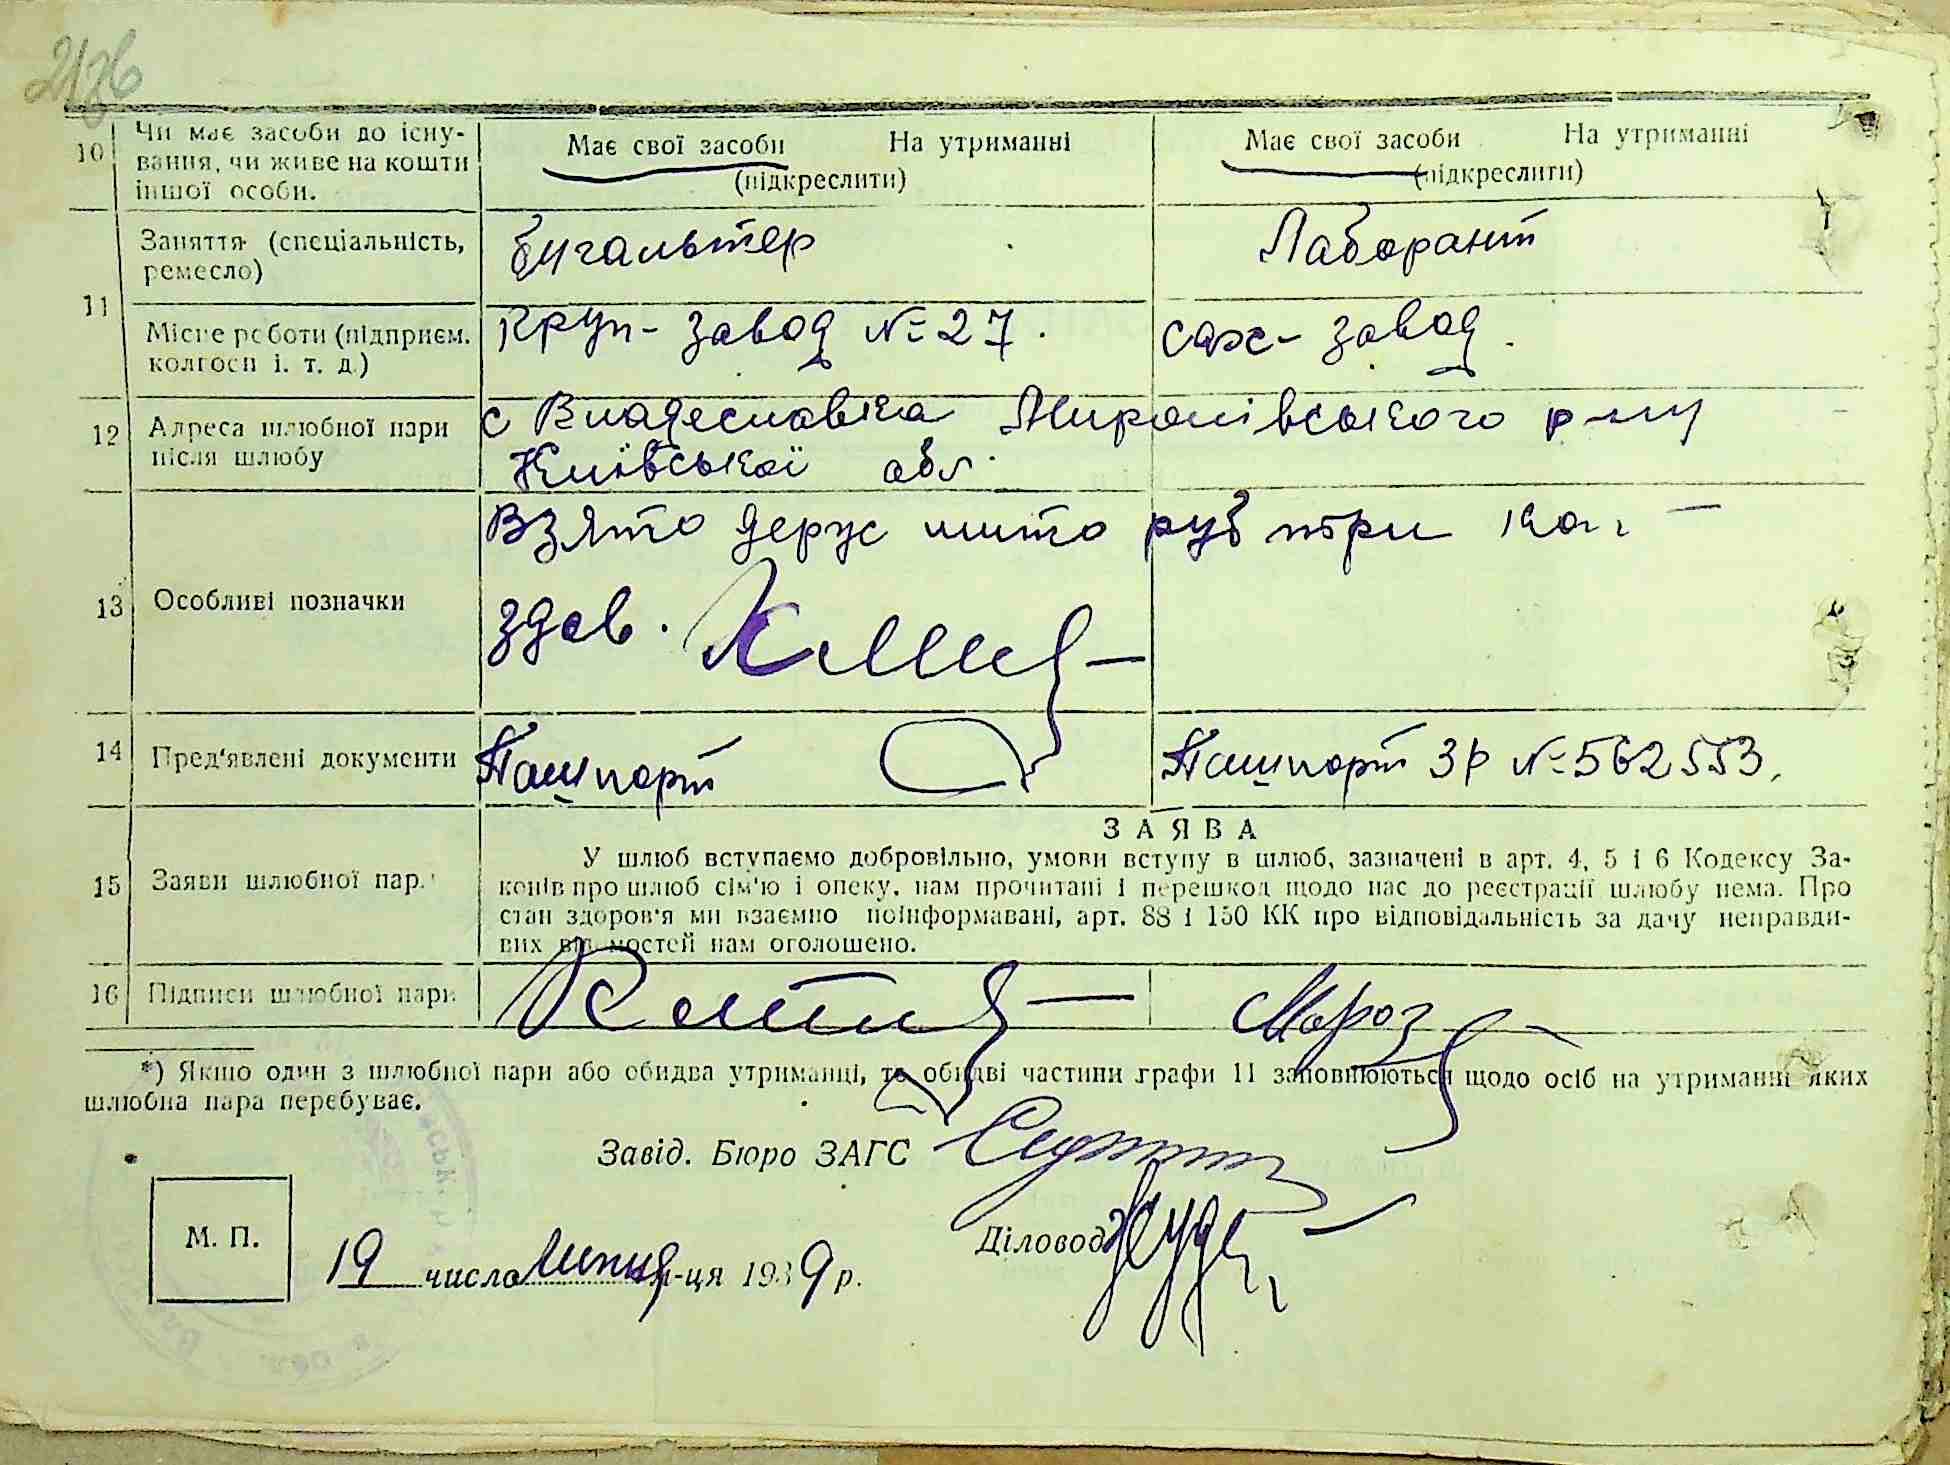 10 Чи має засоби до існу-
вання, чи живе на кошти
іншої особи.
Має свої засоби На утриманні
(підкреслити)
Має свої засоби На утриманні
(підкреслити)
11 Заняття (спеціальність,
ремесло)
бугальтер
Лаборант
Місце роботи (підприєм.
колгосп і. т. д.)
Круп-завод № 27.
сах-завод.
12 Адреса шлюбної пари
після шлюбу
с Владеславка Миронівського р-ну
Київської обл.
13 Особливі позначки
Взято держ мито руб три коп. —
здав.
14 Пред'явлені документи
Пашпорт
Пашпорт ЗР № 562553.
15 Заяви шлюбної пари
ЗАЯВА
У шлюб вступаємо добровільно, умови вступу в шлюб, зазначені в арт. 4, 5 і 6 Кодексу За-
конів про шлюб сім'ю і опеку, нам прочитані і перешкод щодо нас до реєстрації шлюбу нема. Про
стан здоров'я ми взаємно поінформавані, арт. 88 і 150 КК про відповідальність за дачу неправди-
вих відомостей нам оголошено.
16 Підписи шлюбної пари
Мороз
*) Якщо один з шлюбної пари або обидва утриманці, то обидві частини графи 11 заповнюються щодо осіб на утриманні яких
шлюбна пара перебуває.
Завід. Бюро ЗАГС
М. П.
Діловод
19 число липня м-ця 1939 р.